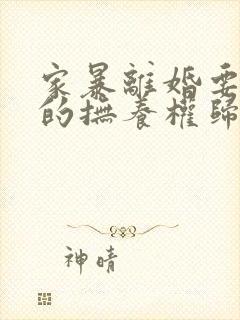 家暴離婚要
的撫養權歸
神晴